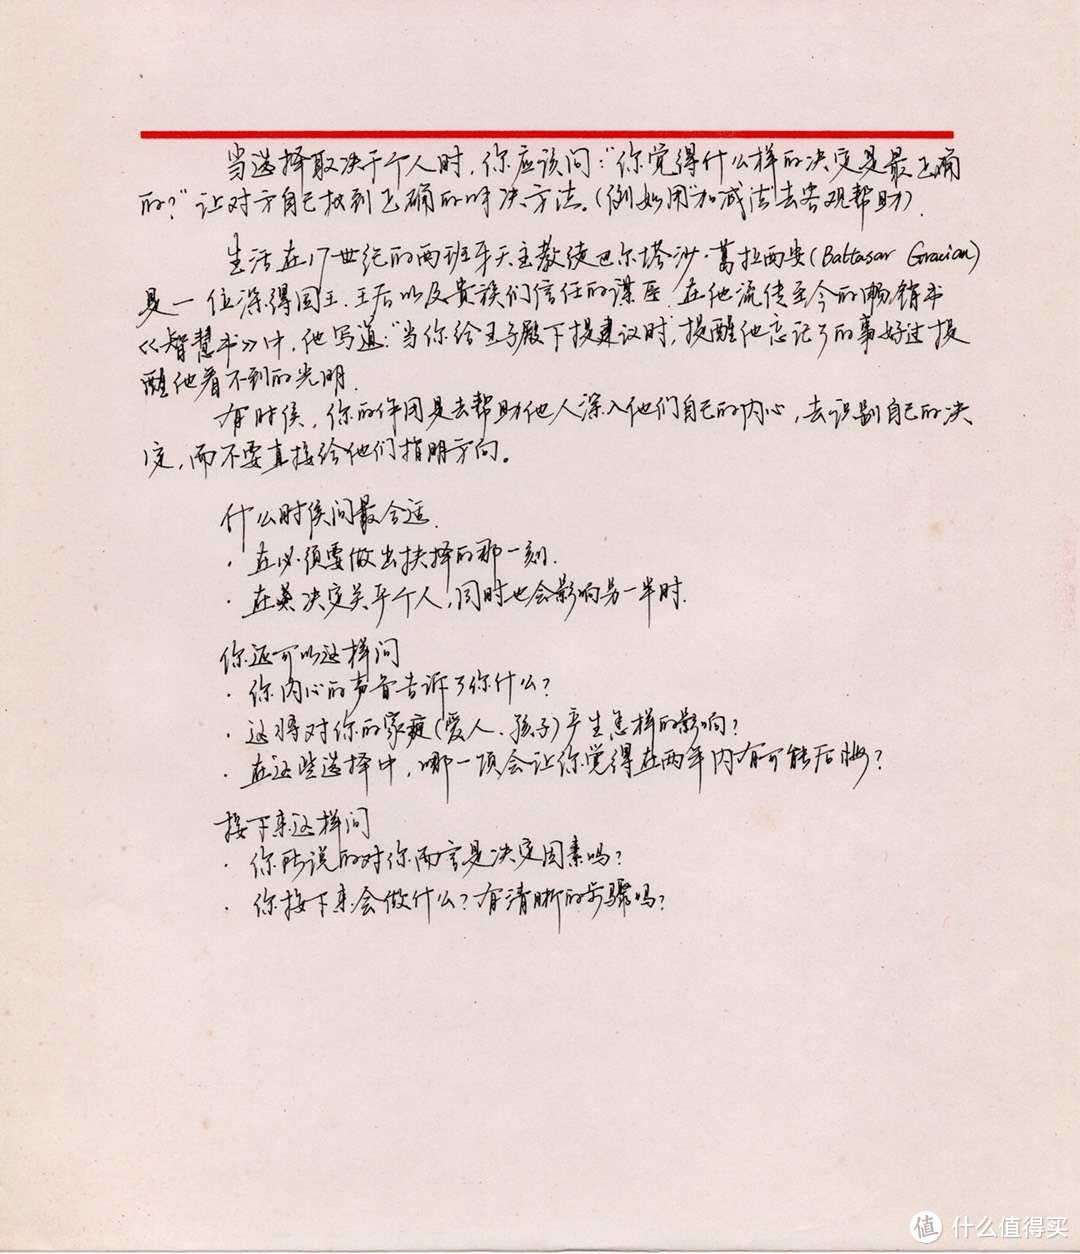 当选择取决于个人时，你应该问：“你觉得什么样的决定是最正确
的？”让对方自己找到正确的解决方法。（例如用“加减法”去客观帮助）.
生活在17世纪的西班牙天主教徒巴尔塔沙·葛拉西安(Baltasar Gracian)
是一位深得国王、王后以及贵族们信任的谋臣.在他流传至今的畅销书
《智慧书》中，他写道：“当你给王子殿下提建议时，提醒他忘记了的事好过提
醒他看不到的光明.
有时候，你的作用是去帮助他人深入他们自己的内心，去识别自己的决
定，而不要直接给他们指明方向。
什么时候问最合适.
·在必须要做出抉择的那一刻.
·在决定关乎个人，同时也会影响另一半时.
你还可以这样问
·你内心的声音告诉了你什么？
·这将对你的家庭（爱人、孩子）产生怎样的影响？
·在这些选择中，哪一项会让你觉得在两年内有可能后悔？
接下来这样问
·你所说的对你而言是决定因素吗？
·你接下来会做什么？有清晰的步骤吗？
值 什么值得买